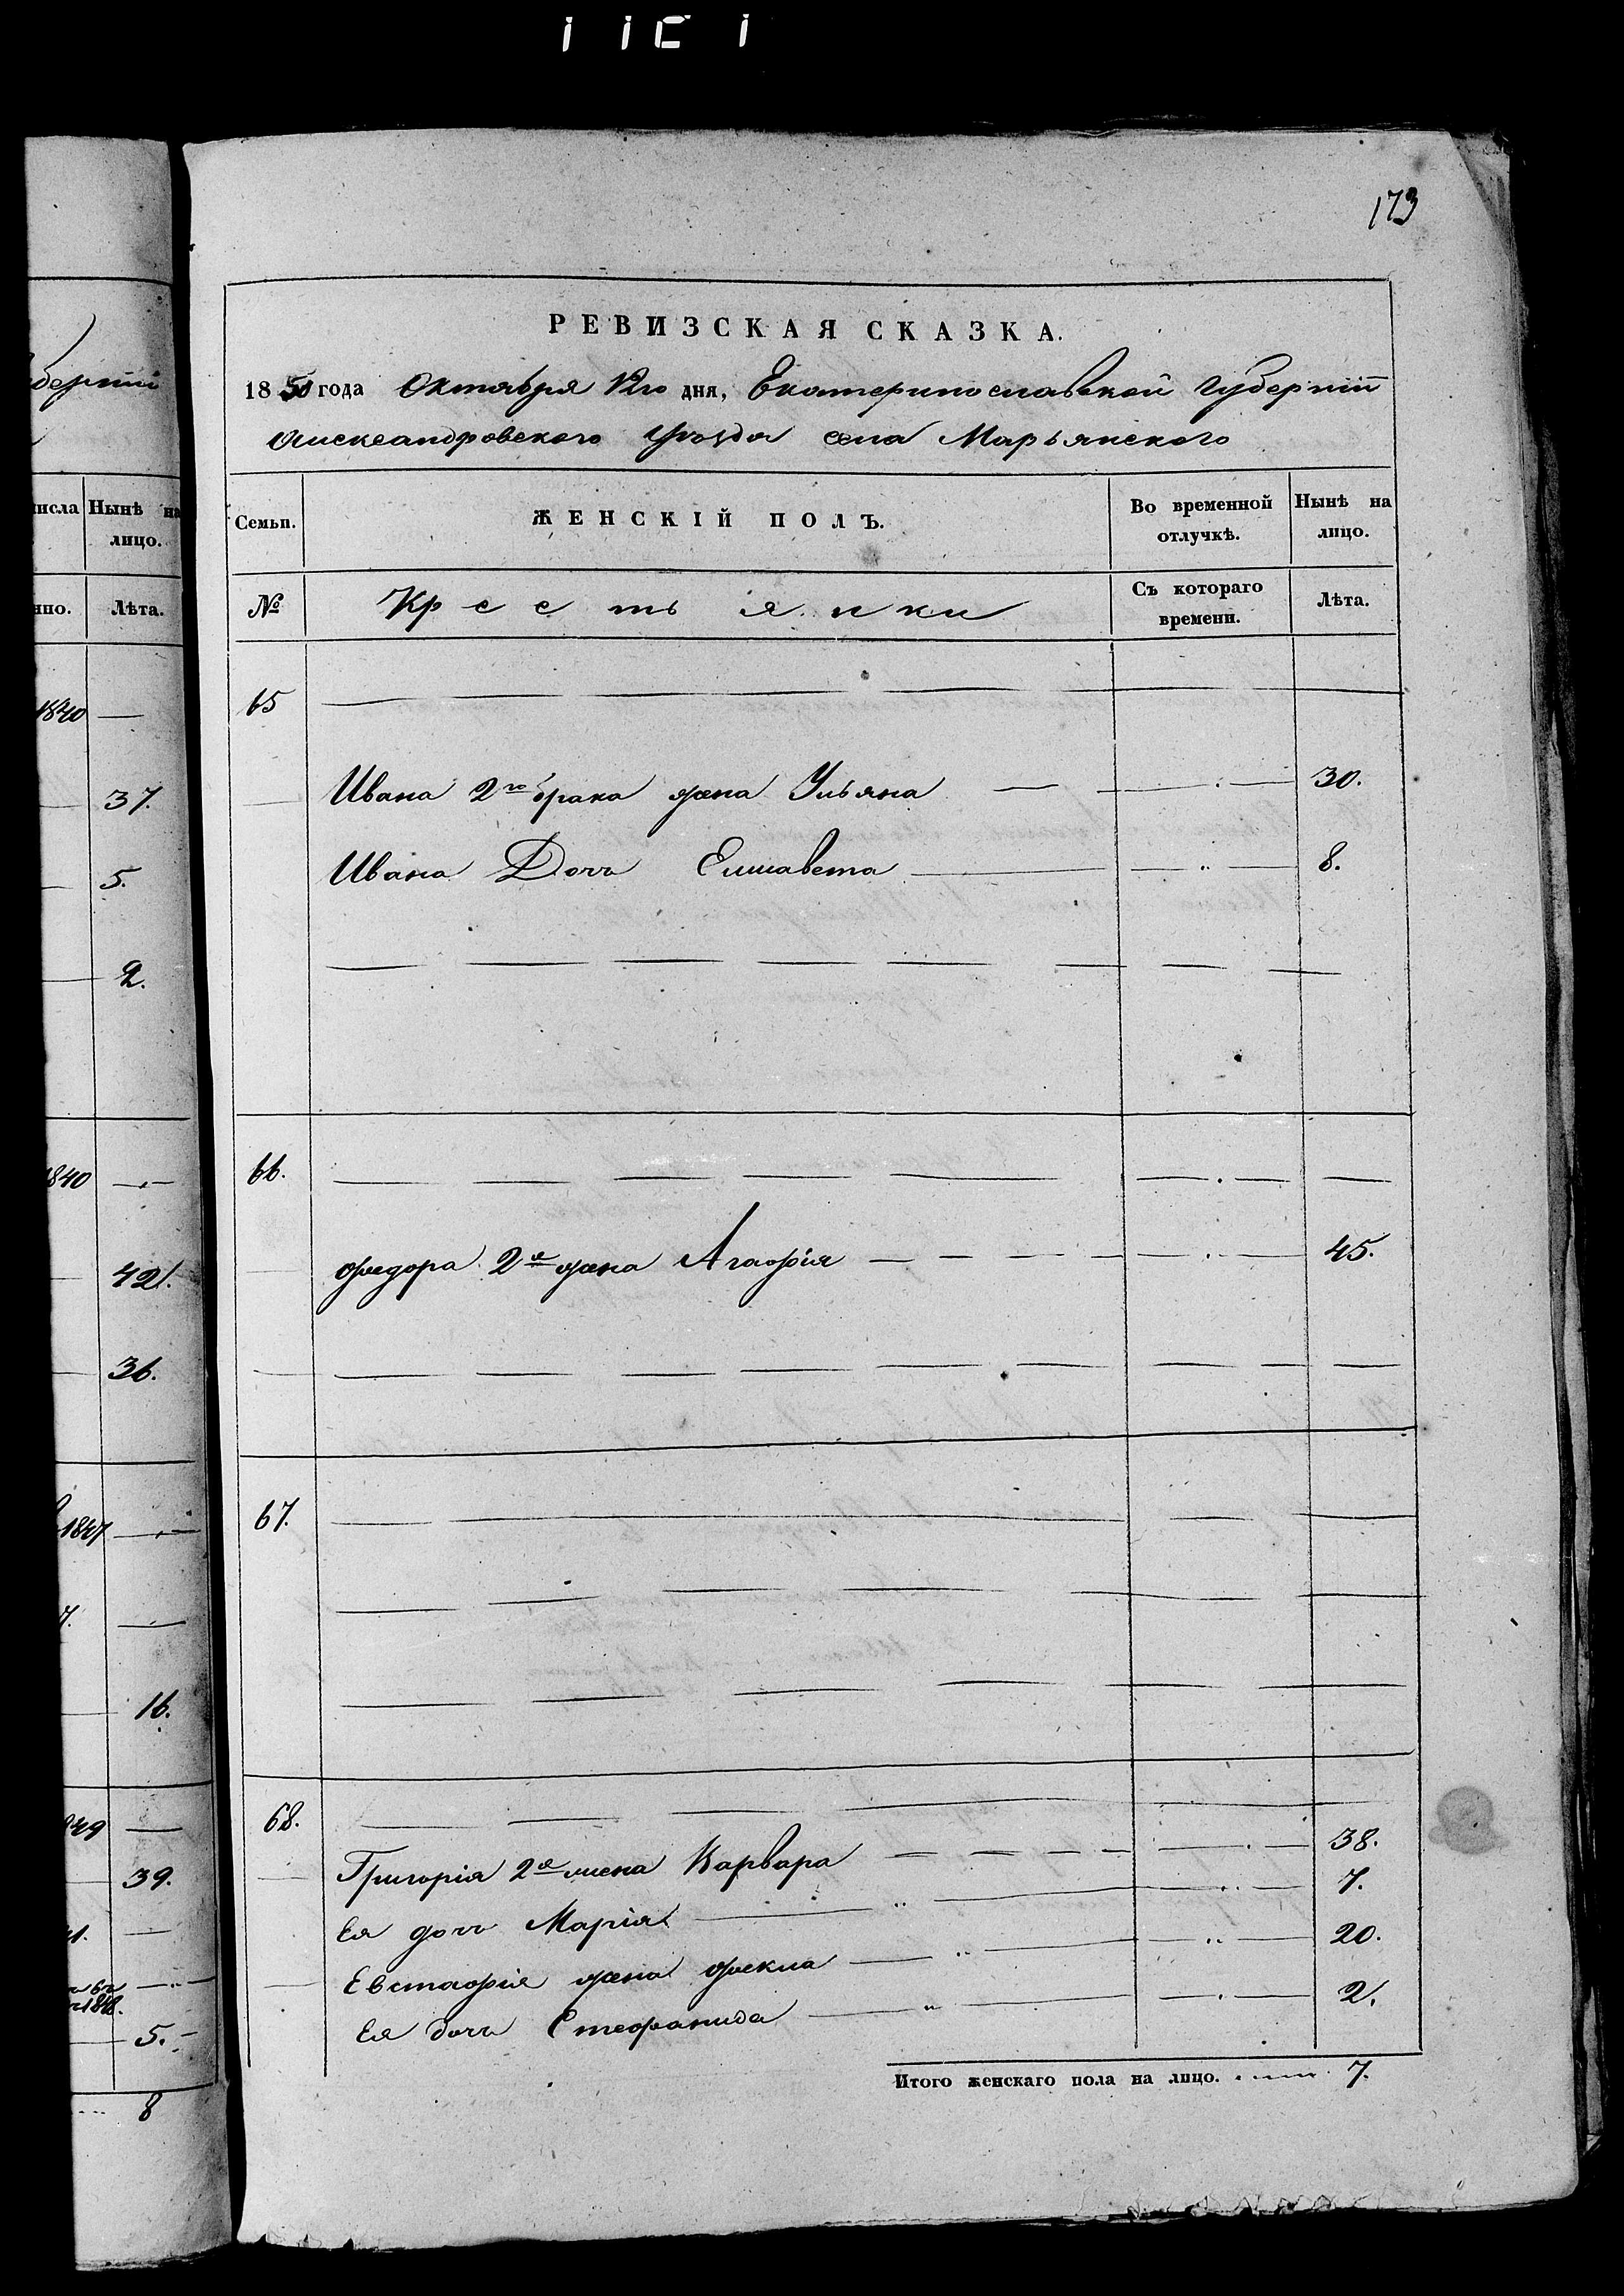 173
РЕВИЗСКАЯ СКАЗКА.
1850 года Октября 12го дня, Екатеринославской Губерніи
Александровского Уѣзда села Марьянского
Семьи. ЖЕНСКІЙ ПОЛЪ. Во временной отлучкѣ. Нынѣ на лицо.
№ Крестьянки Съ котораго времени. Лѣта.
65
Ивана 2го брака жена Ульяна — 30.
Ивана Дочь Елисавета — 8.
66.
Федора 2я жена Агафія — 45.
67.
68.
Григорія 2я жена Варвара — 38.
Ея дочь Марія — 7.
Евстафія жена Фекла — 20.
Ея дочь Стефанида — 2.
Итого женскаго пола на лицо. 7.
берніи
числа Нынѣ на лицо.
нно. Лѣта.
1840 —
37.
5.
2.
1840 —
42.
36.
1847 —
7. —
16.
1849 —
39.
41. —
1848. —
5.
8